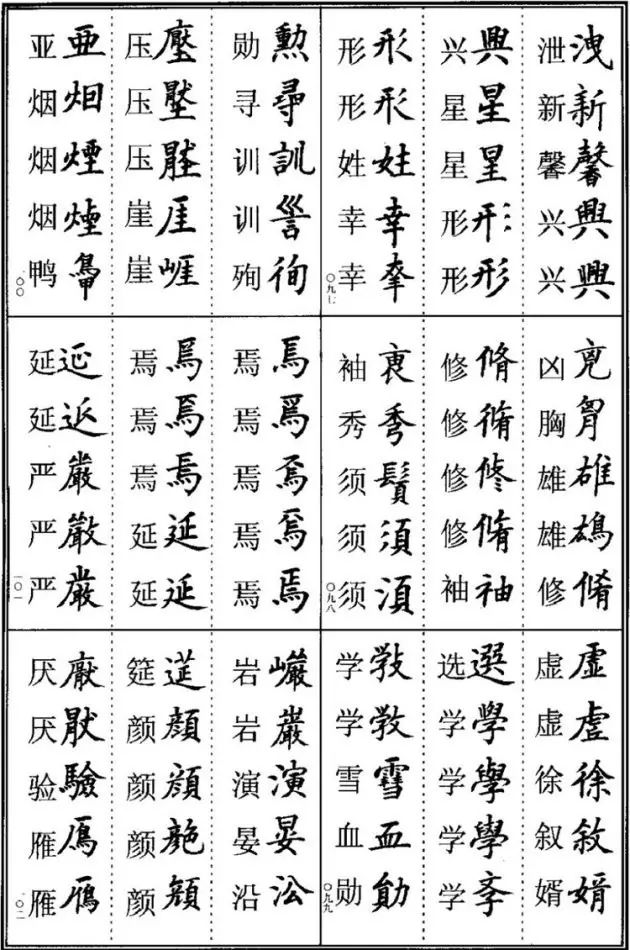 泄洩 新新 馨馨 兴興 兴興
兴興 星星 星 形形 形形
形形 形形 姓姓 幸幸 幸
〇九七
凶兇 胸胷 雄雄 雄 修脩
修脩 修脩 修修 修脩 袖袖
袖 秀秀 须鬚 须須 须湏
〇九八
虚虛 虚虗 徐徐 叙敘 婿婿
选選 学學 学學 学學 学斈
学 学 雪雪 血血 勋勛
〇九九
勋勳 寻尋 训訓 训 殉徇
压壓 压 压 崖厓 崖崕
亚亞 烟烟 烟煙 烟煙 鸭
一〇〇
焉焉 焉焉 焉焉 焉焉 焉焉
焉焉 焉焉 焉焉 延延 延延
延延 延 严嚴 严 严嚴
一〇一
岩巖 岩巖 演演 晏晏 沿沿
筵筵 颜顏 颜顏 颜 颜顏
厌厭 厌 验驗 雁鴈 雁鴈
一〇二